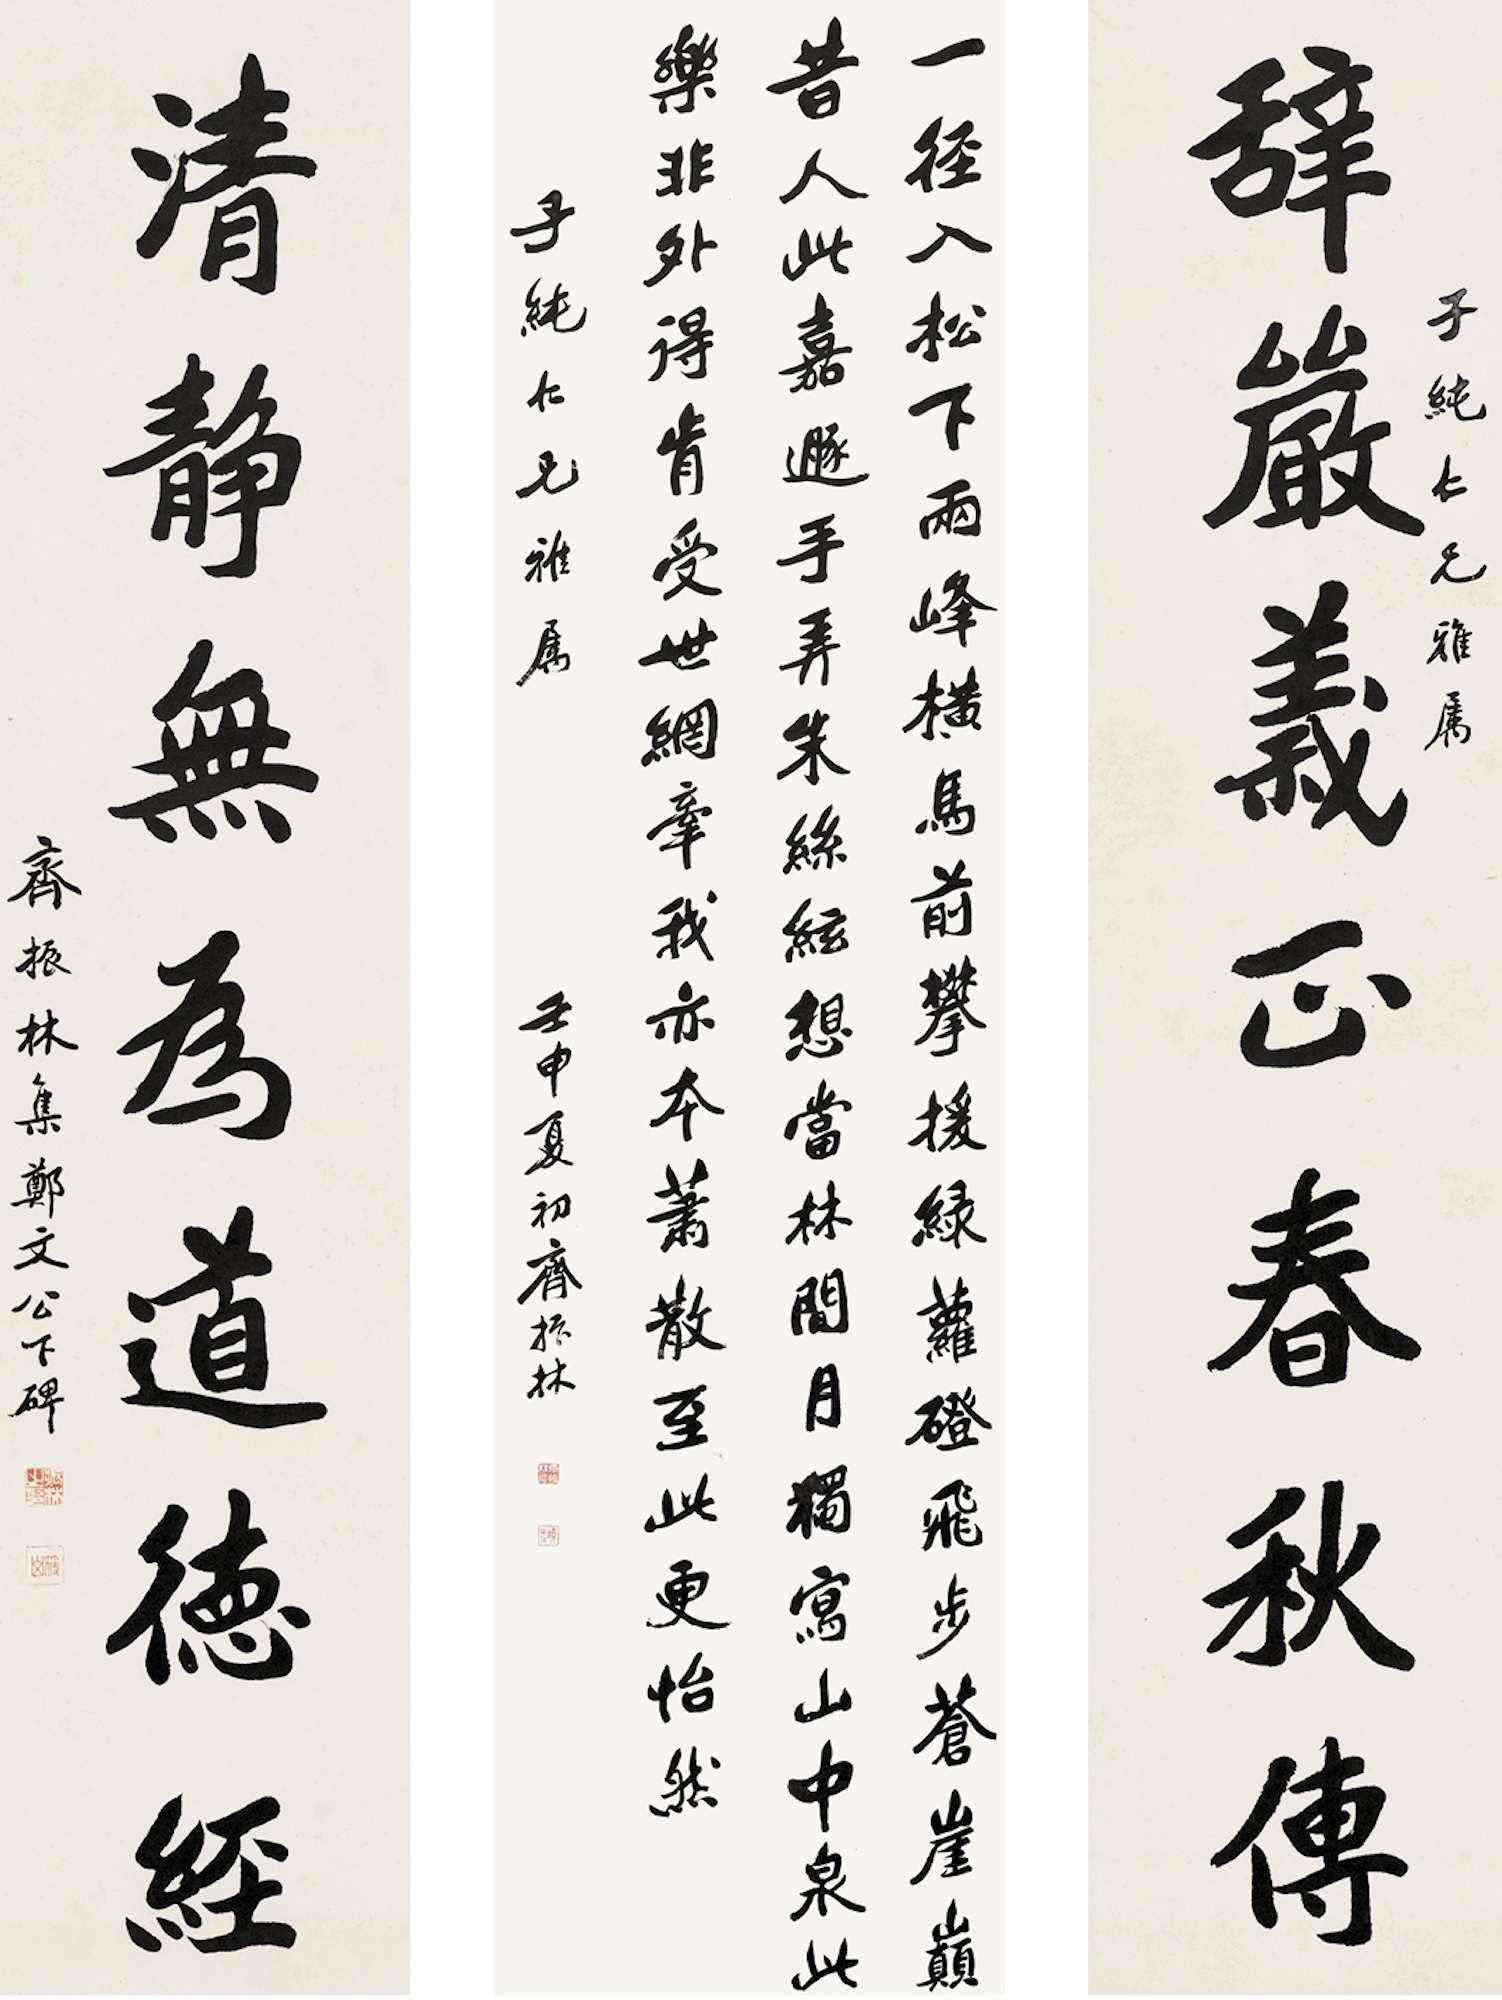 子純仁兄雅属
辞嚴義正春秋傳
一徑入松下兩峰橫馬前攀援緑蘿磴飛步蒼崖巔
昔人此嘉遯手弄朱絲絃想當林間月獨寫山中泉此
樂非外得肯受世網牽我亦本蕭散至此更怡然
子純仁兄雅属
壬申夏初齊振林
清静無為道德經
齊振林集鄭文公下碑